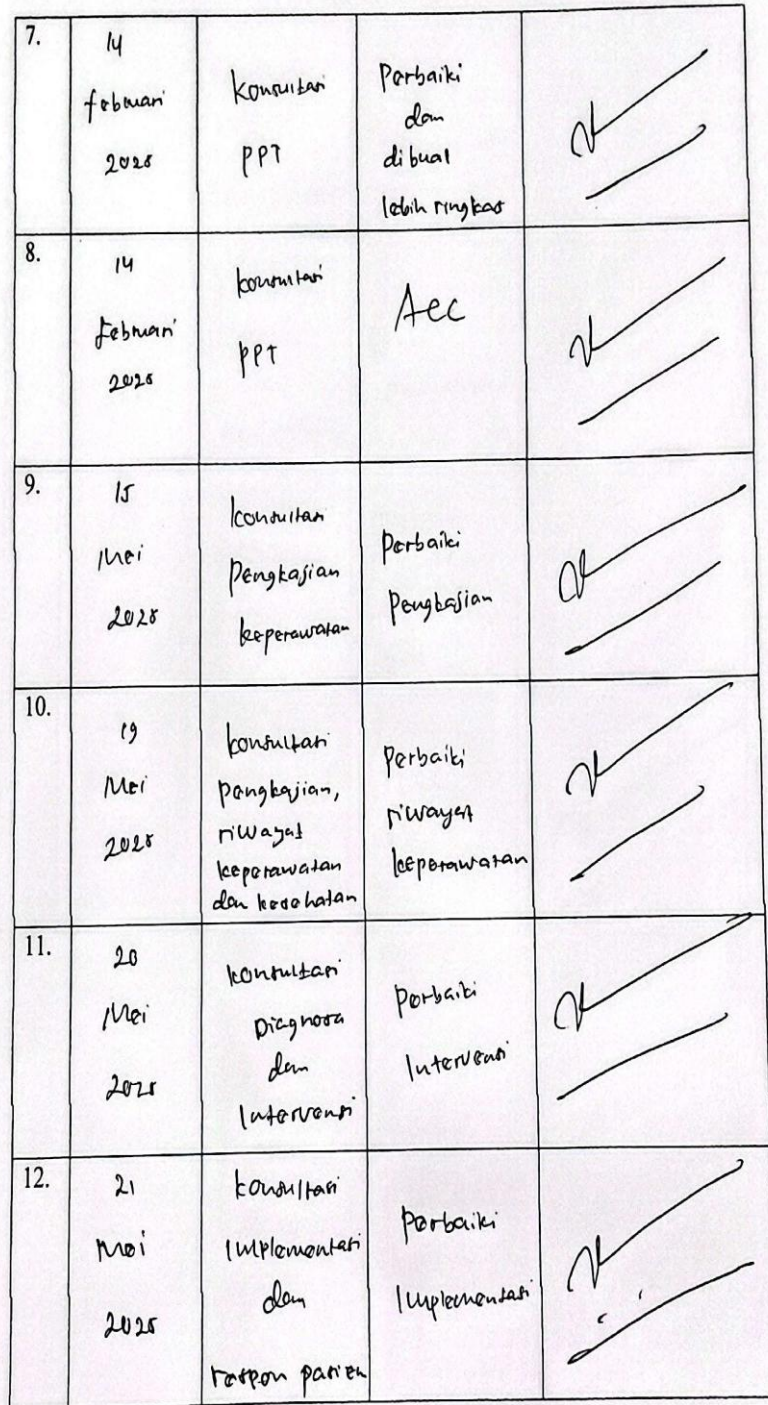 7.
14
februari
2025
Konsultasi
PPT
Perbaiki
dan
dibuat
lebih ringkas
8.
14
Februari
2025
konsultasi
PPT
Acc
9.
15
Mei
2025
konsultasi
Pengkajian
keperawatan
Perbaiki
Pengkajian
10.
19
Mei
2025
konsultasi
pengkajian,
riwayat
keperawatan
dan kesehatan
Perbaiki
riwayat
keperawatan
11.
20
Mei
2025
konsultasi
Diagnosa
dan
Intervensi
Perbaiki
Intervensi
12.
21
Mei
2025
konsultasi
Implementasi
dan
respon pasien
Perbaiki
Implementasi